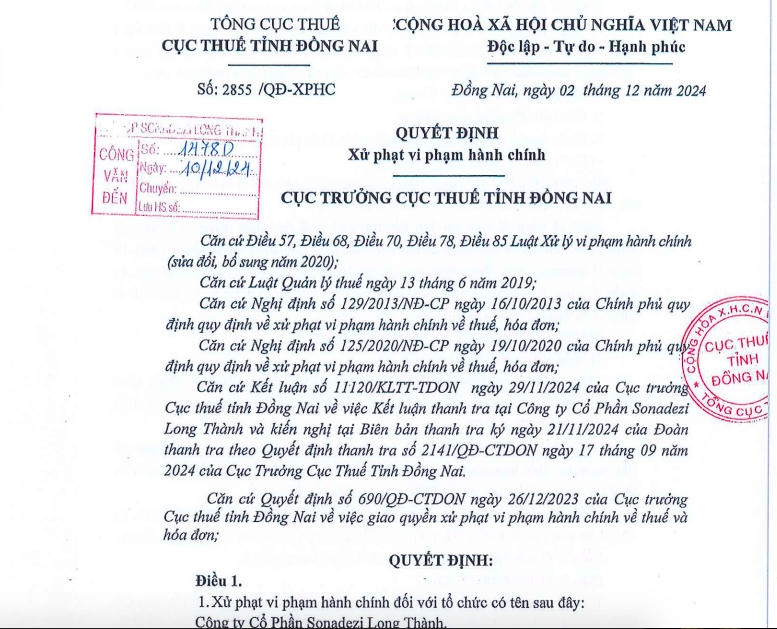 TỔNG CỤC THUẾ
CỤC THUẾ TỈNH ĐỒNG NAI
Số: 2855 /QĐ-XPHC
CỘNG HOÀ XÃ HỘI CHỦ NGHĨA VIỆT NAM
Độc lập - Tự do - Hạnh phúc
Đồng Nai, ngày 02 tháng 12 năm 2024
CP SONADEZI LONG THÀNH
CÔNG VĂN ĐẾN
Số: 1478D
Ngày: 10/12/24
Chuyển:
Lưu HS số:
QUYẾT ĐỊNH
Xử phạt vi phạm hành chính
CỤC TRƯỞNG CỤC THUẾ TỈNH ĐỒNG NAI
Căn cứ Điều 57, Điều 68, Điều 70, Điều 78, Điều 85 Luật Xử lý vi phạm hành chính
(sửa đổi, bổ sung năm 2020);
Căn cứ Luật Quản lý thuế ngày 13 tháng 6 năm 2019;
Căn cứ Nghị định số 129/2013/NĐ-CP ngày 16/10/2013 của Chính phủ quy
định quy định về xử phạt vi phạm hành chính về thuế, hóa đơn;
Căn cứ Nghị định số 125/2020/NĐ-CP ngày 19/10/2020 của Chính phủ quy
định quy định về xử phạt vi phạm hành chính về thuế, hóa đơn;
Căn cứ Kết luận số 11120/KLTT-TDON ngày 29/11/2024 của Cục trưởng
Cục thuế tỉnh Đồng Nai về việc Kết luận thanh tra tại Công ty Cổ Phần Sonadezi
Long Thành và kiến nghị tại Biên bản thanh tra ký ngày 21/11/2024 của Đoàn
thanh tra theo Quyết định thanh tra số 2141/QĐ-CTDON ngày 17 tháng 09 năm
2024 của Cục Trưởng Cục Thuế Tỉnh Đồng Nai.
Căn cứ Quyết định số 690/QĐ-CTDON ngày 26/12/2023 của Cục trưởng
Cục thuế tỉnh Đồng Nai về việc giao quyền xử phạt vi phạm hành chính về thuế và
hóa đơn;
CỘNG HÒA X.H.C.N
CỤC THUẾ
TỈNH
ĐỒNG NA
TỔNG CỤC T
QUYẾT ĐỊNH:
Điều 1.
1. Xử phạt vi phạm hành chính đối với tổ chức có tên sau đây:
Công ty Cổ Phần Sonadezi Long Thành.